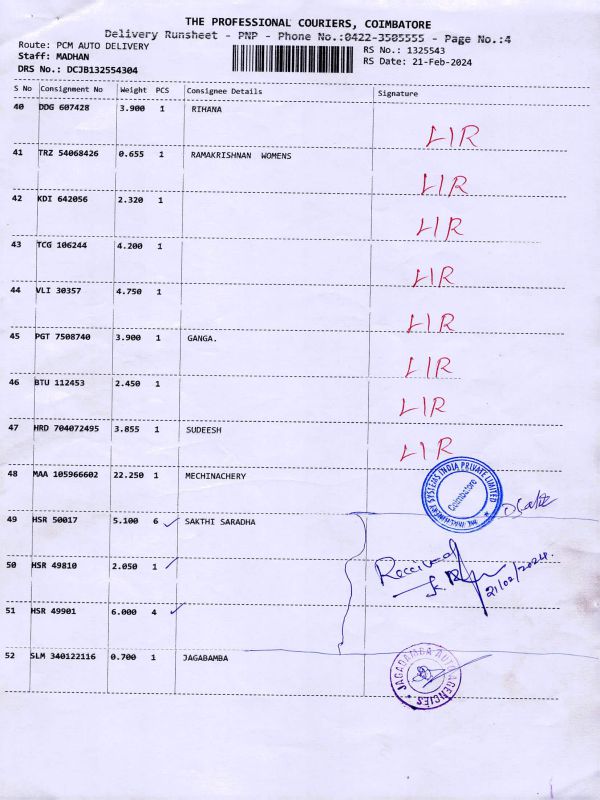 THE PROFESSIONAL COURIERS, COIMBATORE
Delivery Runsheet - PNP - Phone No.:0422-3505555 - Page No.:4
Route: PCM AUTO DELIVERY
Staff: MADHAN
DRS No.: DCJB132554304
RS No.: 1325543
RS Date: 21-Feb-2024
S No Consignment No Weight PCS Consignee Details Signature
40 DDG 607428 3.900 1 RIHANA
LIR
41 TRZ 54068426 0.655 1 RAMAKRISHNAN WOMENS
LIR
42 KDI 642056 2.320 1
LIR
43 TCG 106244 4.200 1
LIR
44 VLI 30357 4.750 1
LIR
45 PGT 7508740 3.900 1 GANGA.
LIR
46 BTU 112453 2.450 1
LIR
47 HRD 704072495 3.855 1 SUDEESH
LIR
48 MAA 105966602 22.250 1 MECHINACHERY
SYSTEMS INDIA PRIVATE LIMITED
Coimbatore
49 HSR 50017 5.100 6 SAKTHI SARADHA
50 HSR 49810 2.050 1
Received
21/02/2024.
51 HSR 49901 6.000 4
52 SLM 340122116 0.700 1 JAGABAMBA
JAGADAMBA AUTO AGENCIES